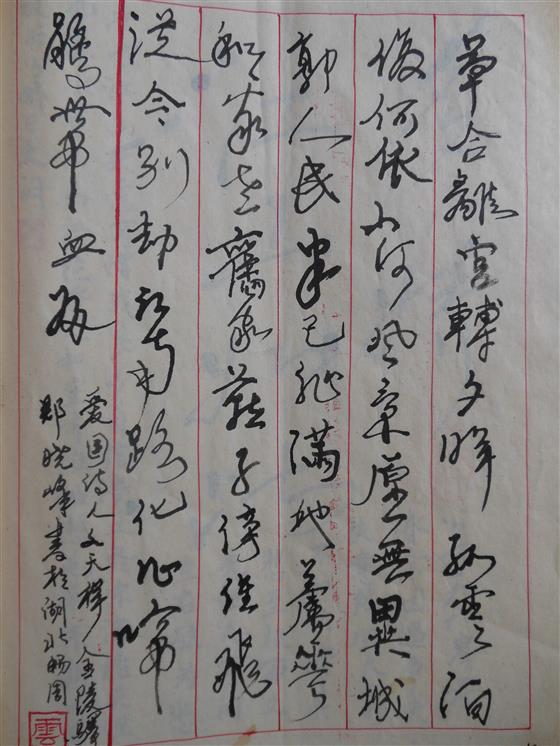 草合離宮轉夕暉孤雲泊
復何依山河風景原無異城
郭人民半已非滿地蘆
和我老舊家燕子傍誰飛
從今別却江南路化作啼
鵑帶血歸
爱国诗人文天祥金陵驛
鄭曉峰書於湖北
雲